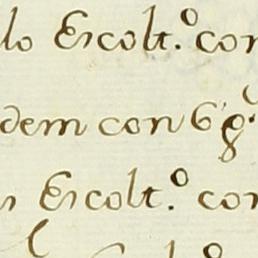 lo Escolt.º con
dem con 6 g.
s Escolt.º con